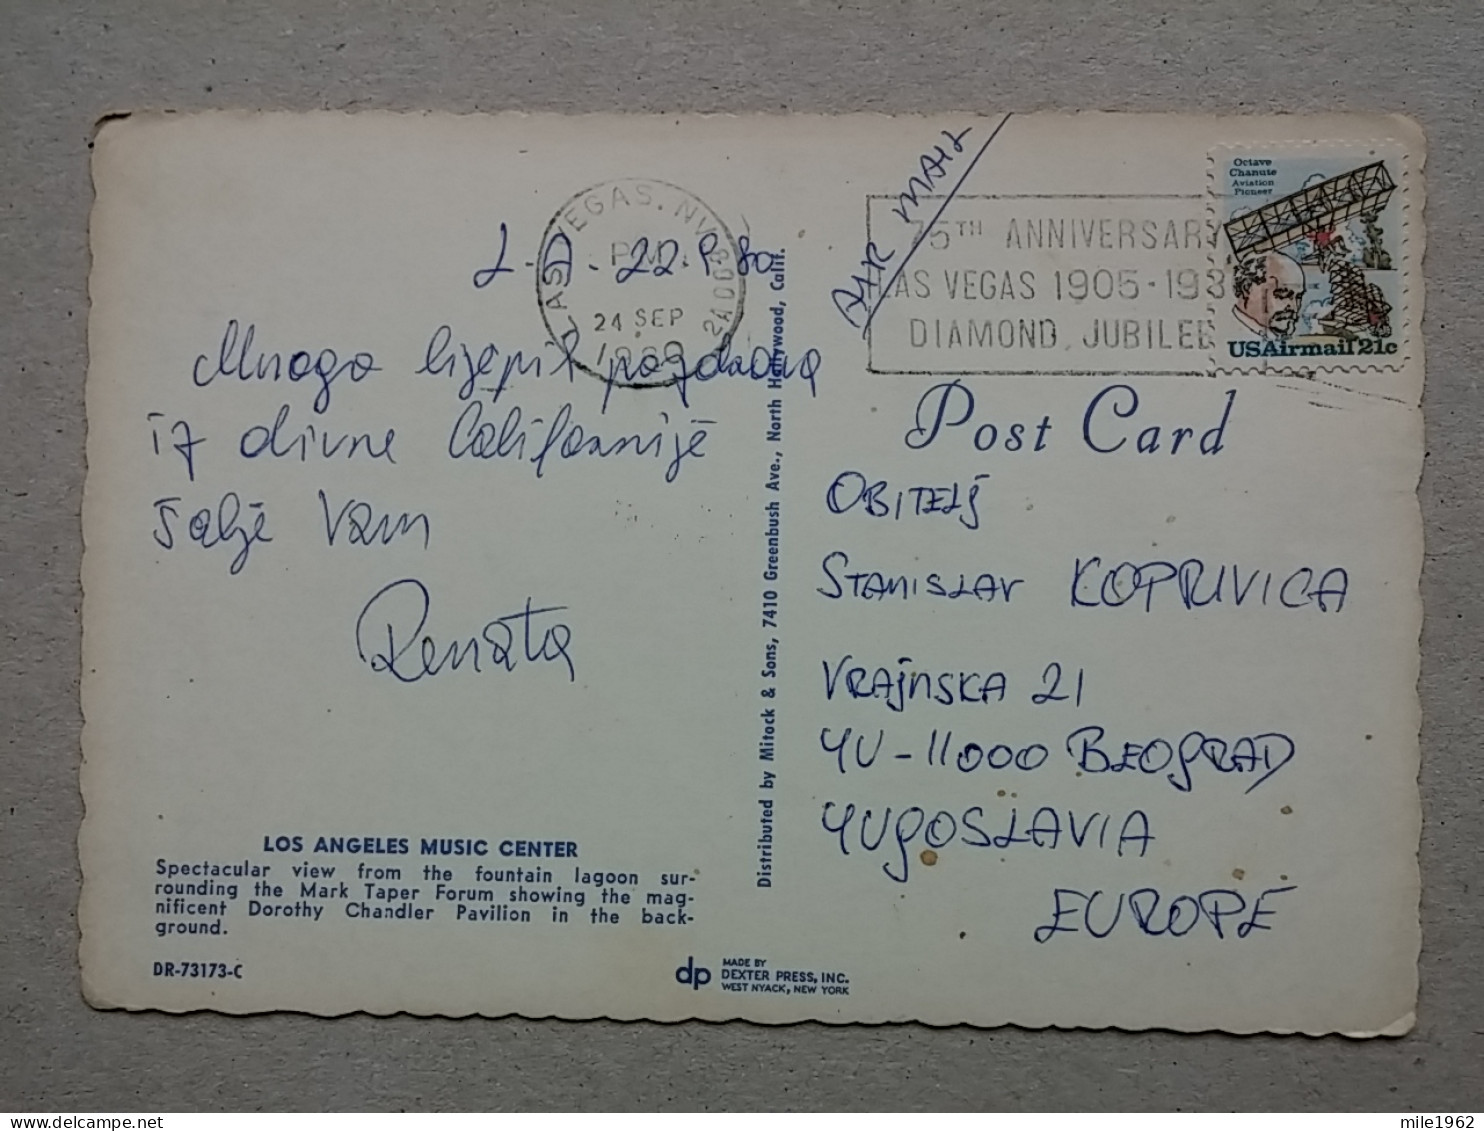 AIR MAIL
Octave
Chanute
Aviation
Pioneer
USAirmail 21c
LAS VEGAS, NV
PM
24 SEP
1980
75TH ANNIVERSARY
LAS VEGAS 1905-198
DIAMOND JUBILEE
L.A. 22.9.80.
Mnogo lijepih pozdrava
iz divne Californije
šalje Vam
Renata
Post Card
OBITELJ
STANISLAV KOPRIVICA
VRAJNSKA 21
YU-11000 BEOGRAD
YUGOSLAVIA
EUROPE
Distributed by Mitock & Sons, 7410 Greenbush Ave., North Hollywood, Calif.
LOS ANGELES MUSIC CENTER
Spectacular view from the fountain lagoon sur-
rounding the Mark Taper Forum showing the mag-
nificent Dorothy Chandler Pavilion in the back-
ground.
DR-73173-C
dp
MADE BY
DEXTER PRESS, INC.
WEST NYACK, NEW YORK
mile1962